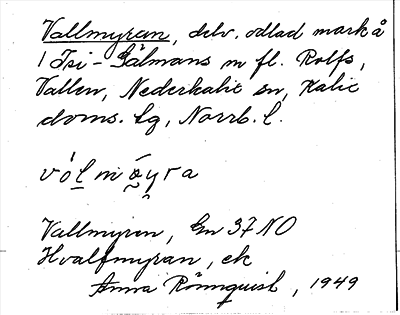 Vallmyran, delv. odlad mark å
1 Isi-Gälmans m fl. Rolfs,
Vallen, Nederkalix sn, Kalix
doms. lg, Norrb. l.
vól mÿra
Vallmyren, Gn 37 NO
Hvalfmyran, ek
Anna Rönnquist, 1949